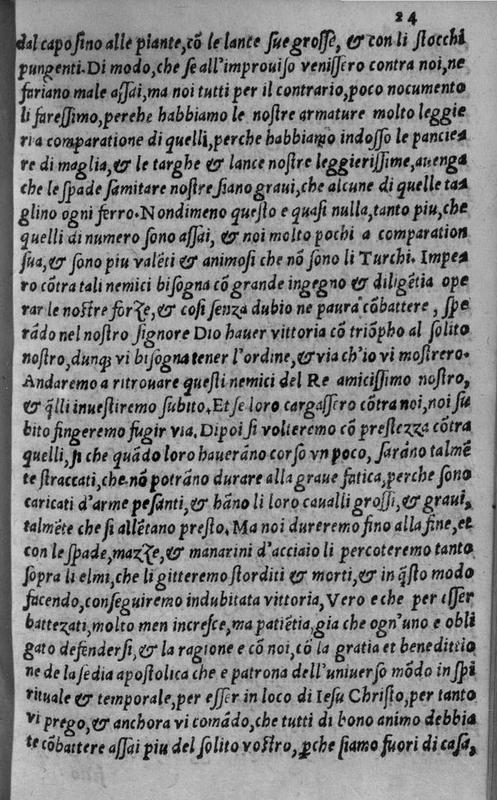 24
dal capo sino alle piante, cõ le lance sue grosse, & con li stocchi
pungenti. Di modo, che se all'improuiso venissero contra noi, ne
fariano male assai, ma noi tutti per il contrario, poco nocumento
li faressimo, perehe habbiamo le nostre armature molto leggie
ri a comparatione di quelli, perche habbiamo indosso le panciea
re di maglia, & le targhe & lance nostre leggierissime, auenga
che le spade samitare nostre siano graui, che alcune di quelle taa
glino ogni ferro. Nondimeno questo e quasi nulla, tanto piu, che
quelli di numero sono assai, & noi molto pochi a comparation
sua, & sono piu valẽti & animosi che nõ sono li Turchi. Impea
ro cõtra tali nemici bisogna cõ grande ingegno & diligẽtia ope
rar le nostre forze, & cosi senza dubio ne paura cõbattere, spe
rãdo nel nostro signore Dio hauer vittoria cõ triõpho al solito
nostro, dunq; vi bisogna tener l'ordine, & via ch'io vi mostrero.
Andaremo a ritrouare questi nemici del Re amicissimo nostro,
& q̃lli inuestiremo subito. Et se loro cargassero cõtra noi, noi su
bito fingeremo fugir via. Dipoi si volteremo cõ prestezza cõtra
quelli, si che quãdo loro hauerãno corso vn poco, sarãno talmẽ
te straccati, che nõ potrãno durare alla graue fatica, perche sono
caricati d'arme pesanti, & hãno li loro caualli grossi, & graui,
talmẽte che si allẽtano presto. Ma noi dureremo fino alla fine, et
con le spade, mazze, & manarini d'acciaio li percoteremo tanto
sopra li elmi, che li gitteremo storditi & morti, & in q̃sto modo
facendo, conseguiremo indubitata vittoria, Vero e che per esser
battezati, molto men incresce, ma patiẽtia, gia che ogn'uno e obli
gato defendersi, & la ragione e cõ noi, cõ la gratia et benedittio
ne de la sedia apostolica che e patrona dell'uniuerso mõdo in spi
rituale & temporale, per esser in loco di Iesu Christo, per tanto
vi prego, & anchora vi comãdo, che tutti di bono animo debbia
te cõbattere assai piu del solito vostro, ꝑche siamo fuori di casa,